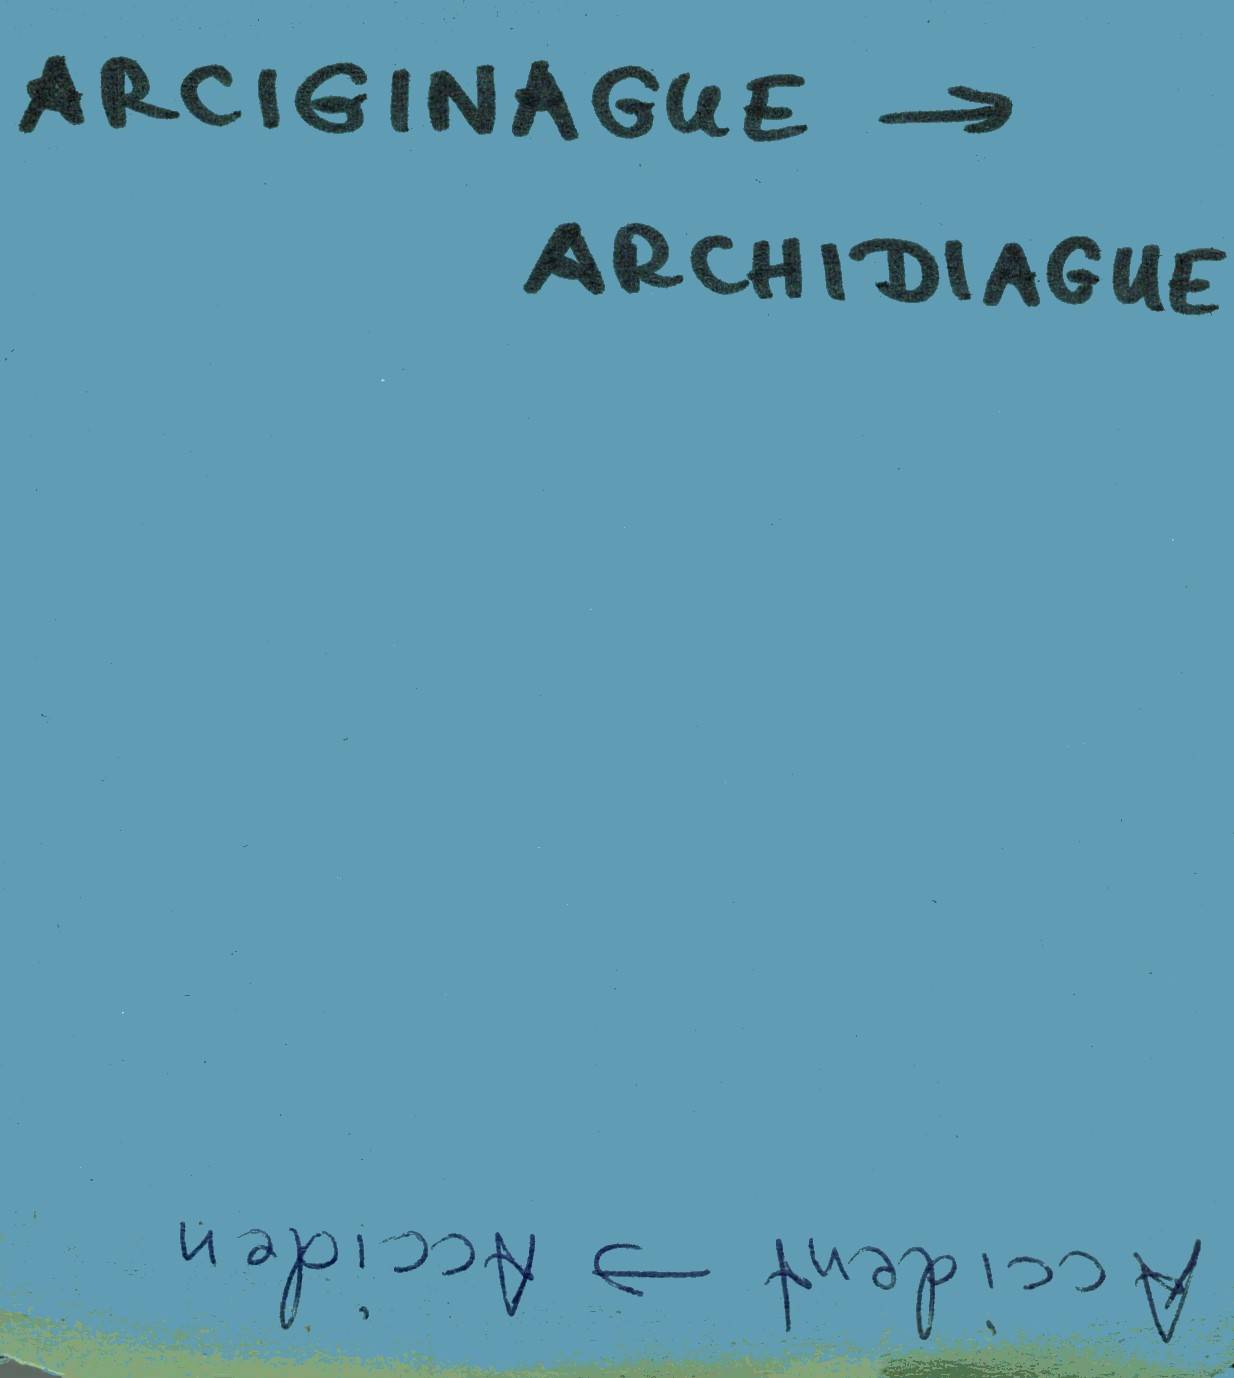 ARCIGINAGUE →
ARCHIDIAGUE
Accident → Acciden